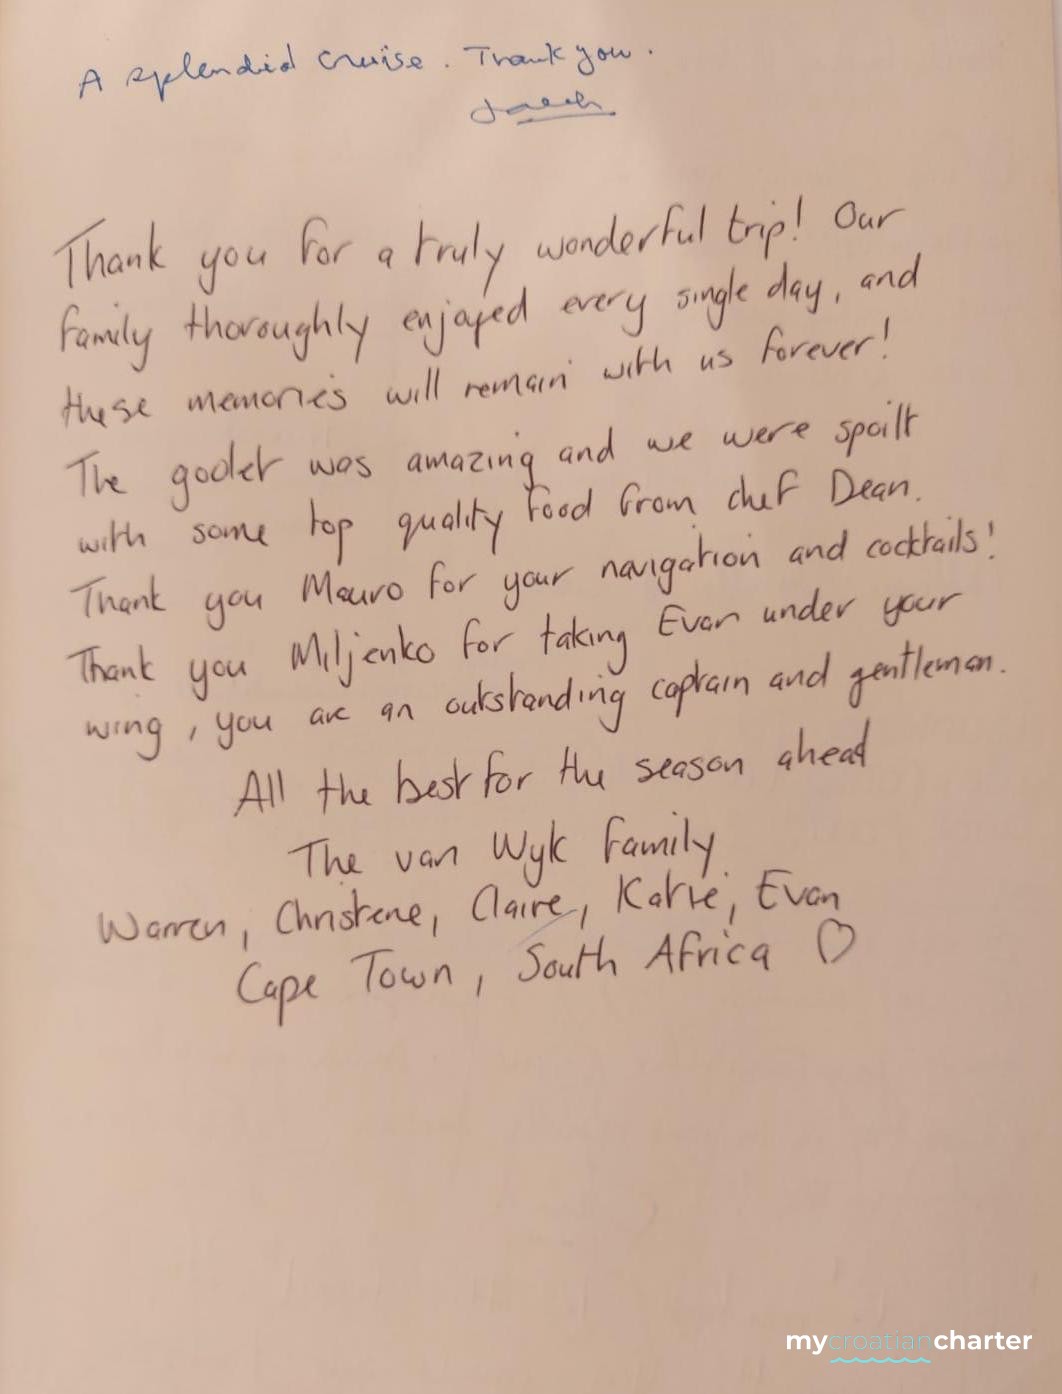 A splendid cruise. Thank you.
Thank you for a truly wonderful trip! Our
family thoroughly enjoyed every single day, and
these memories will remain with us forever!
The goolet was amazing and we were spoilt
with some top quality food from chef Dean.
Thank you Mauro for your navigation and cocktails!
Thank you Miljenko for taking Evan under your
wing, you are an outstanding captain and gentleman.
All the best for the season ahead
The van Wyk family
Warren, Christene, Claire, Katie, Evan
Cape Town, South Africa ♡
mycroatiancharter